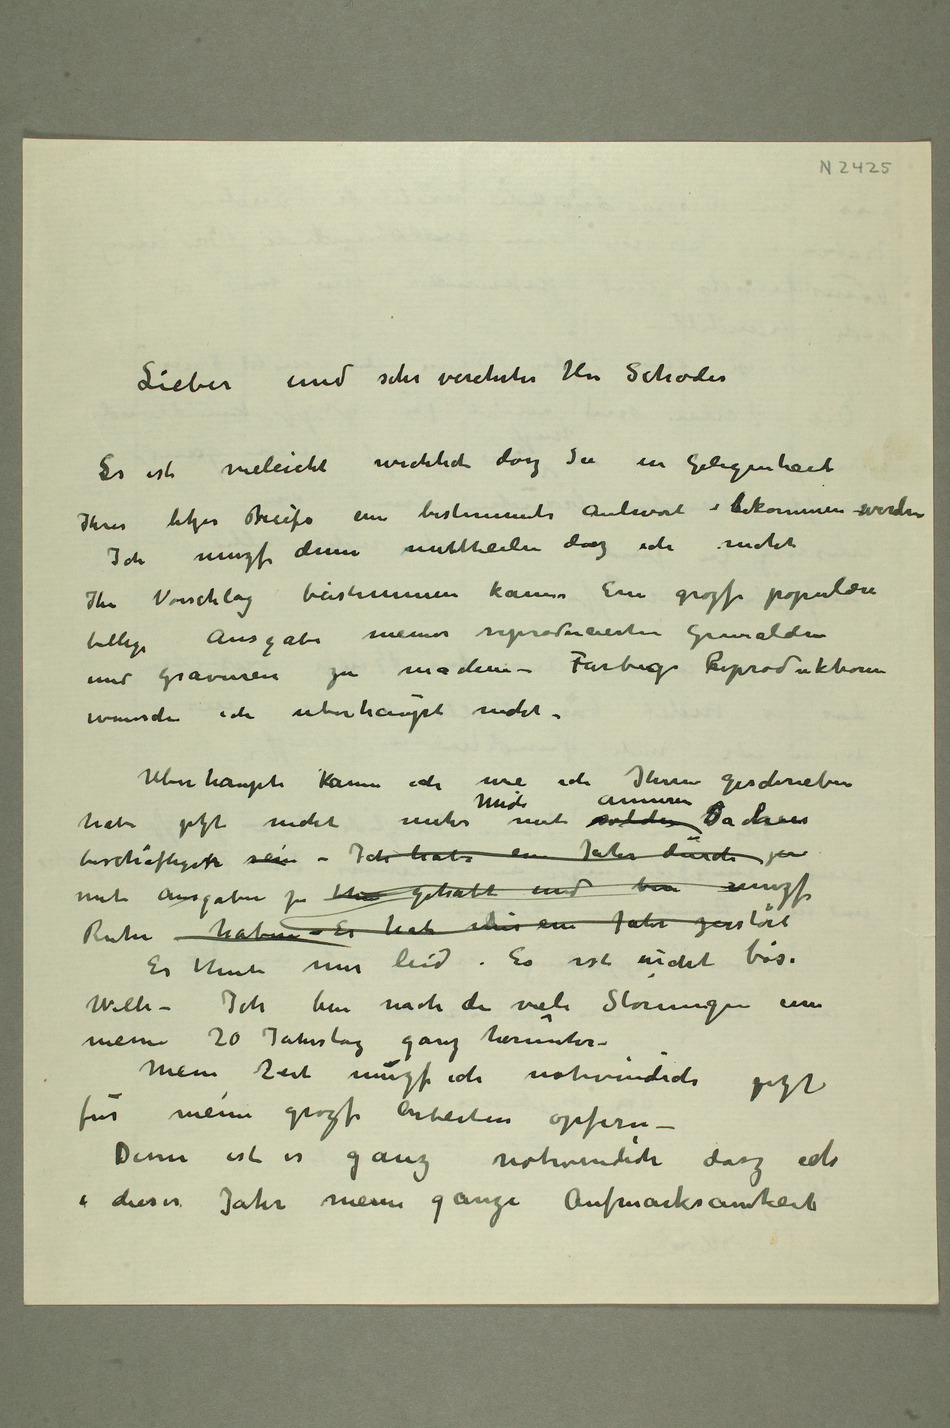 N 2425
Lieber und sehr verehrter Herr Schroder
Es ist vieleicht wichtich dasz Sie in Geligenheit
Ihres letzes Briefs eine bestimmte Antwort bekommen werden
Ich muszs denn mittheilen dasz ich nicht
Ihr Vorschlag beistimmen kann Eine groszse populäre
billige Ausgabe meiner reproducierten Gemälden
und Gravuren zu machen – Farbige Reproduktionen
wunsche ich uberhaupt nicht –
Uberhaupt kann ich wie ich Ihnen geschrieben
habe jetzt nicht mit solchen Sachen
Mich anneren
beschäftigen sein – Ich habe ein Jahr durch
mit Ausgaben gehabt und bin muszs
Ruhe haben – Es hat ein Jahr zerstört
Es thut mir leid. Es ist nicht böse
Wille – Ich bin nach die viele Störungen um
meine 20 Jahrstag ganz herunter –
Meine Zeit muszs ich notwindich jetzt
für meine groszse Arbeiten opfern –
Denn ist es ganz notwendich dasz ich
i dieses Jahr meine ganze Aufmarksamkeit